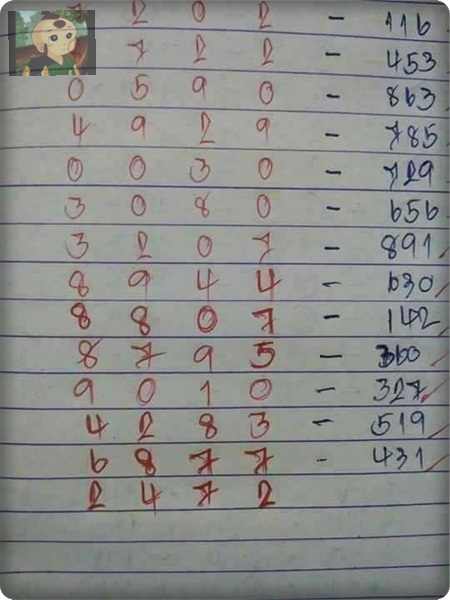 2 0 2 - 116
7 2 2 - 453
0 5 9 0 - 863
4 9 2 9 - 785
0 0 3 0 - 729
3 0 8 0 - 656
3 2 0 7 - 891
8 9 4 4 - 630
8 8 0 7 - 142
8 7 9 5 - 360
9 0 1 0 - 327
4 2 8 3 - 519
6 8 7 7 - 431
2 4 7 2